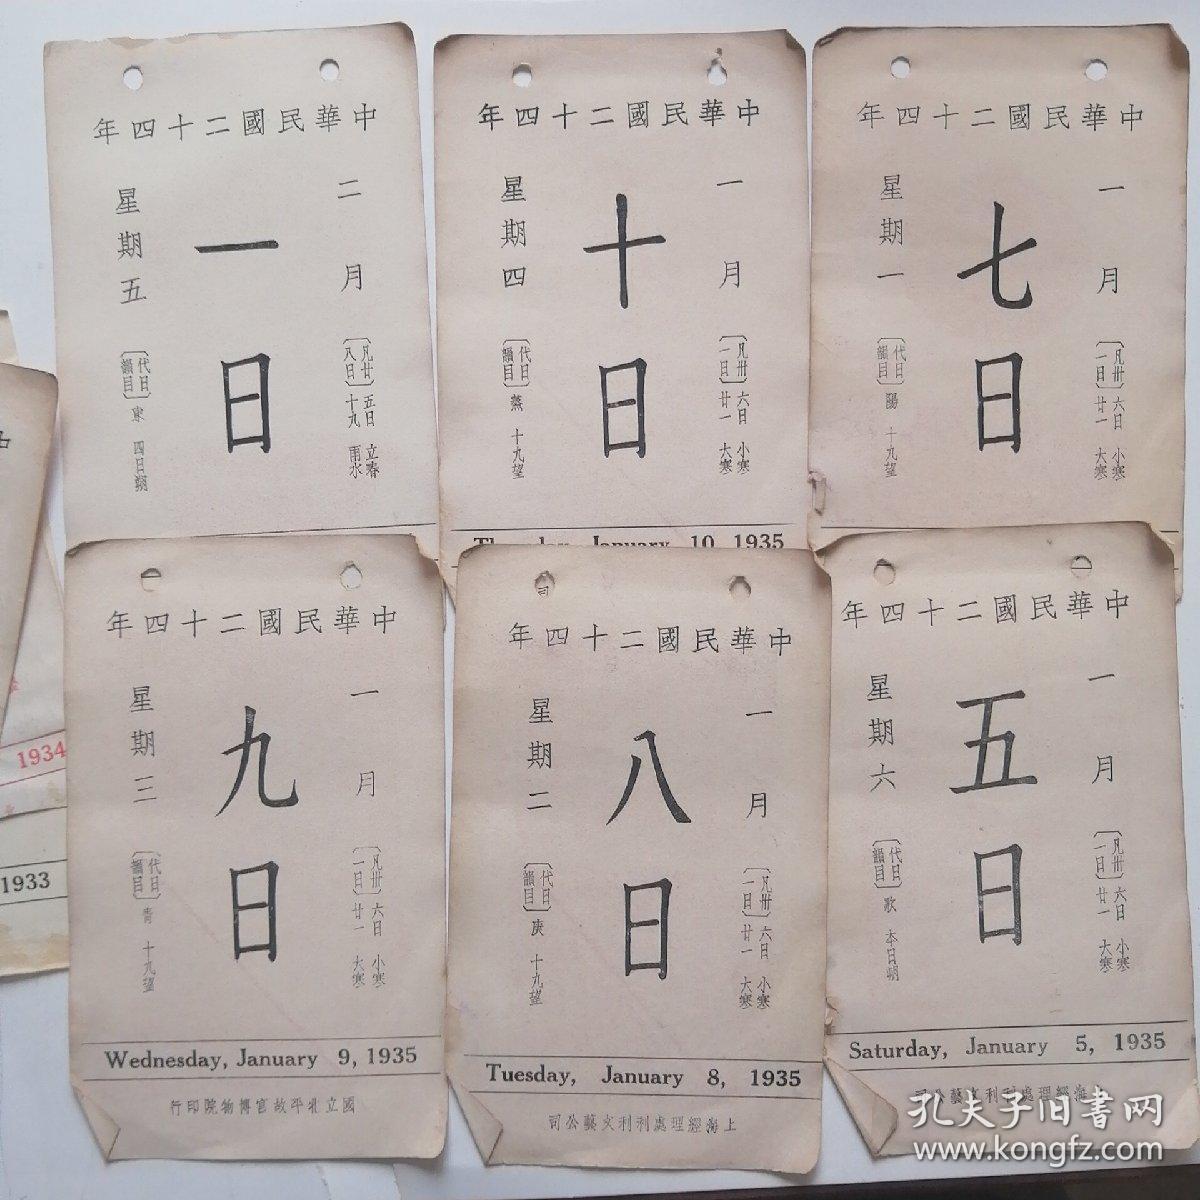 中華民國二十四年
二月
一日
星期五
〔凡廿八日〕
五日 立春
十九 雨水
〔代日韻目〕 東
四日朔
中華民國二十四年
一月
十日
星期四
〔凡卅一日〕
六日 小寒
廿一 大寒
〔代日韻目〕 蒸
十九望
January 10, 1935
中華民國二十四年
一月
七日
星期一
〔凡卅一日〕
六日 小寒
廿一 大寒
〔代日韻目〕 陽
十九望
中華民國二十四年
一月
九日
星期三
〔凡卅一日〕
六日 小寒
廿一 大寒
〔代日韻目〕 青
十九望
Wednesday, January 9, 1935
國立北平故宮博物院印行
中華民國二十四年
一月
八日
星期二
〔凡卅一日〕
六日 小寒
廿一 大寒
〔代日韻目〕 庚
十九望
Tuesday, January 8, 1935
上海經理處利利文藝公司
中華民國二十四年
一月
五日
星期六
〔凡卅一日〕
六日 小寒
廿一 大寒
〔代日韻目〕 歌
本日朔
Saturday, January 5, 1935
海經理處利利文藝公司
1934
1933
孔夫子旧書网
www.kongfz.com